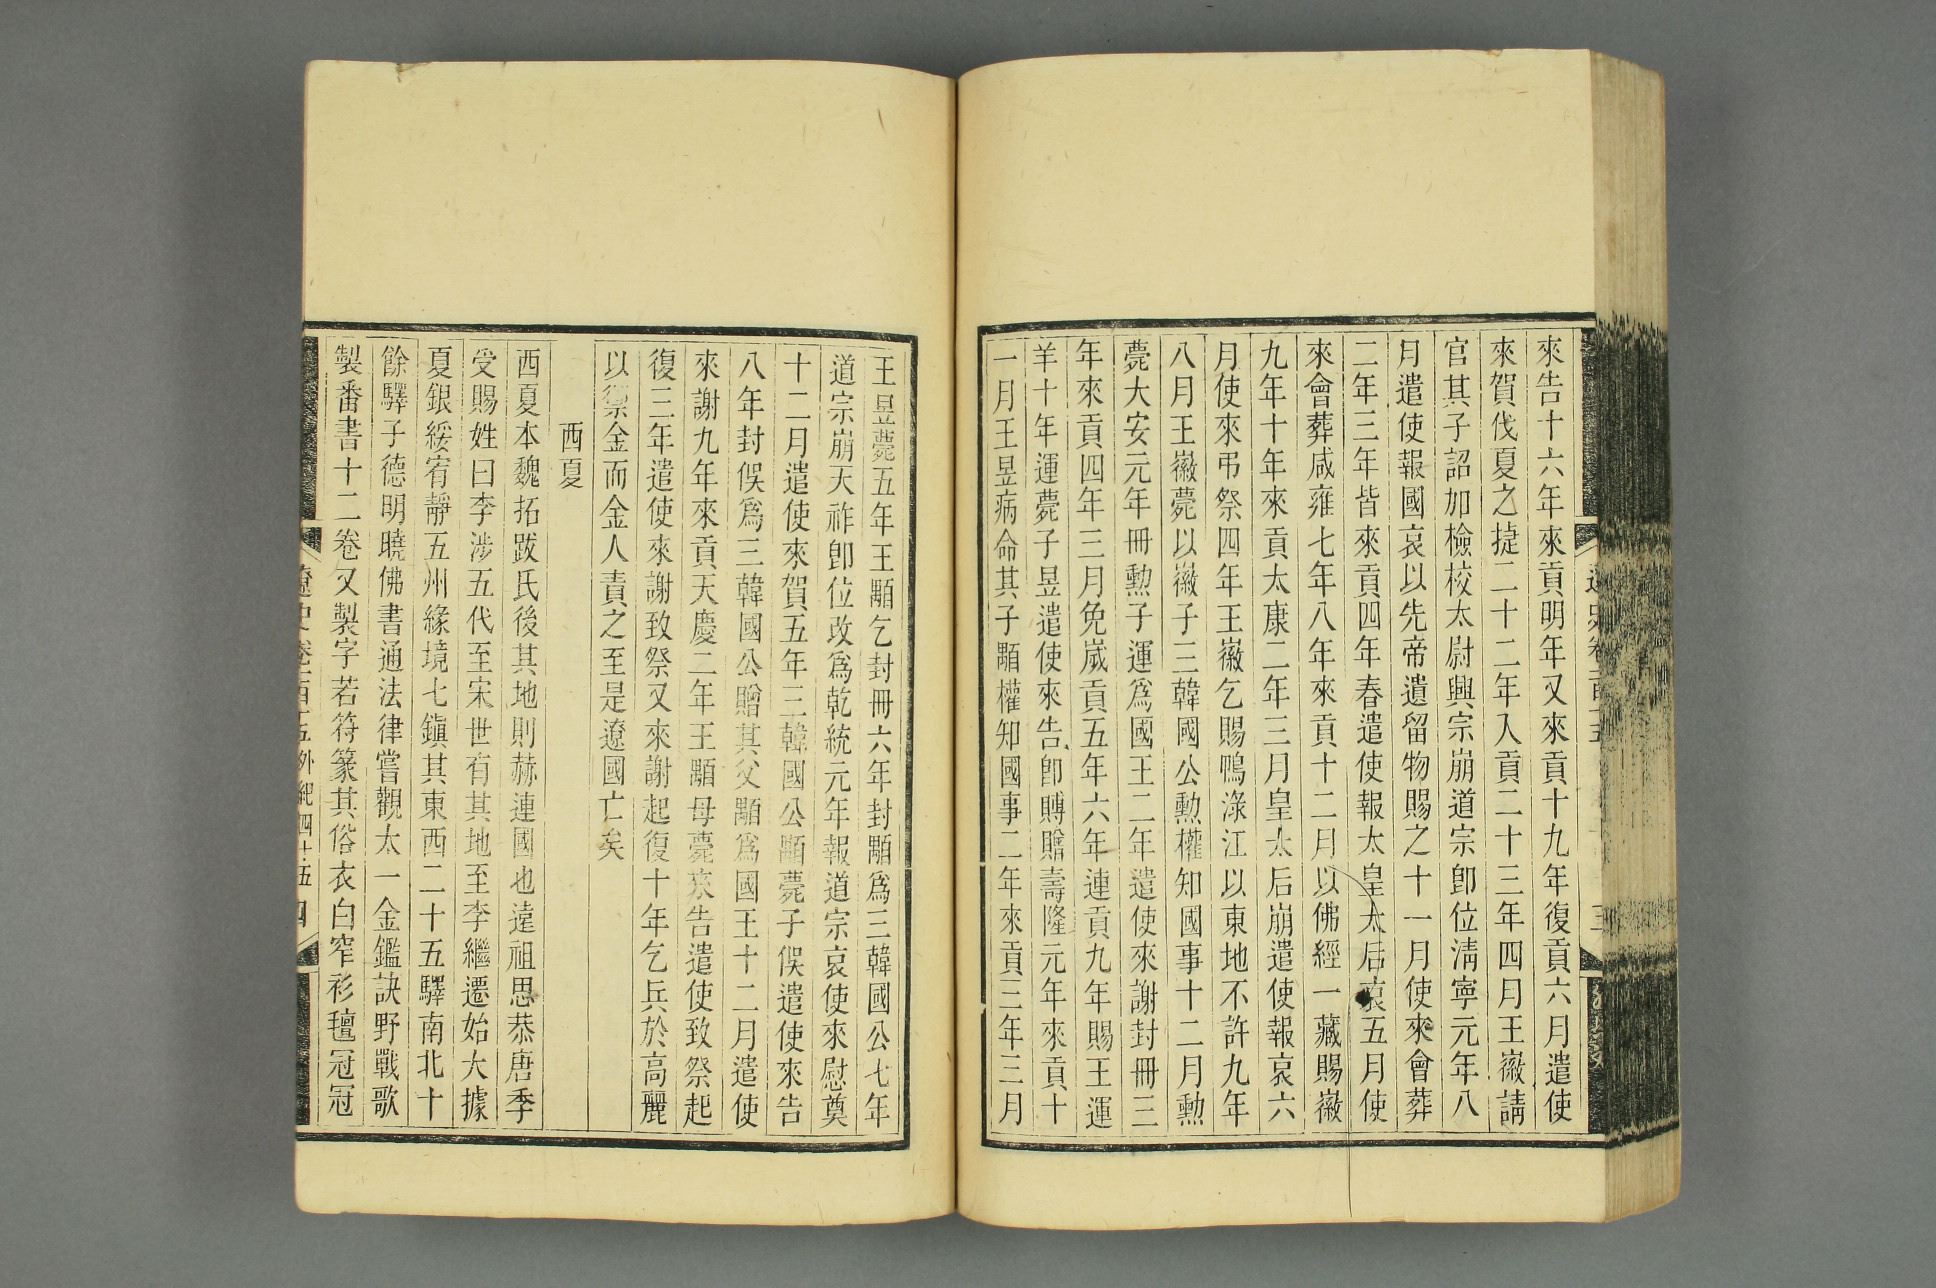 來告十六年來貢明年又來貢十九年復貢六月遣使
來賀伐夏之捷二十二年入貢二十三年四月王徽請
官其子詔加檢校太尉興宗崩道宗卽位淸寧元年八
月遣使報國哀以先帝遺留物賜之十一月使來會葬
二年三年皆來貢四年春遣使報太皇太后哀五月使
來會葬咸雍七年八年來貢十二月以佛經一藏賜徽
九年十年來貢太康二年三月皇太后崩遣使報哀六
月使來弔祭四年王徽乞賜鴨淥江以東地不許九年
八月王徽薨以徽子三韓國公勳權知國事十二月勳
薨大安元年冊勳子運爲國王二年遣使來謝封冊三
年來貢四年三月免嵗貢五年六年連貢九年賜王運
羊十年運薨子昱遣使來告卽賻贈壽隆元年來貢十
一月王昱病命其子顒權知國事二年來貢三年三月
王昱薨五年王顒乞封冊六年封顒爲三韓國公七年
道宗崩天祚卽位改爲乾統元年報道宗哀使來慰奠
十二月遣使來賀五年三韓國公顒薨子俁遣使來告
八年封俁爲三韓國公贈其父顒爲國王十二月遣使
來謝九年來貢天慶二年王顒母薨來告遣使致祭起
復三年遣使來謝致祭又來謝起復十年乞兵於高麗
以禦金而金人責之至是遼國亡矣
西夏
西夏本魏拓跋氏後其地則赫連國也遠祖思恭唐季
受賜姓曰李涉五代至宋世有其地至李繼遷始大據
夏銀綏宥靜五州緣境七鎭其東西二十五驛南北十
餘驛子德明曉佛書通法律嘗觀太一金鑑訣野戰歌
製番書十二卷又製字若符篆其俗衣白窄衫氊冠冠
遼史卷百十五外紀四十五 四